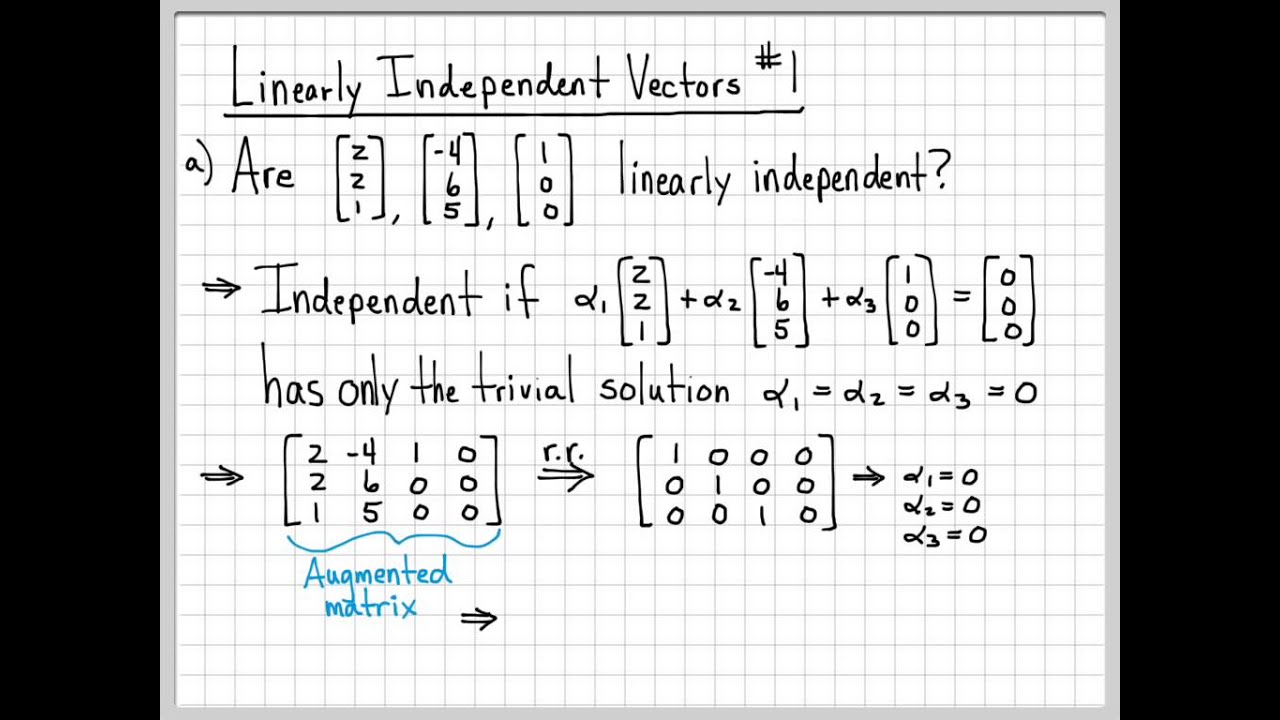 Linearly Independent Vectors #1
a) Are [2 2 1], [-4 6 5], [1 0 0] linearly independent?
⇒ Independent if α₁[2 2 1] + α₂[-4 6 5] + α₃[1 0 0] = [0 0 0]
has only the trivial solution α₁ = α₂ = α₃ = 0
⇒ [2 -4 1 0 r.r. ⇒ [1 0 0 0 ⇒ α₁ = 0
2 6 0 0 0 1 0 0 α₂ = 0
1 5 0 0] 0 0 1 0] α₃ = 0
Augmented
matrix ⇒